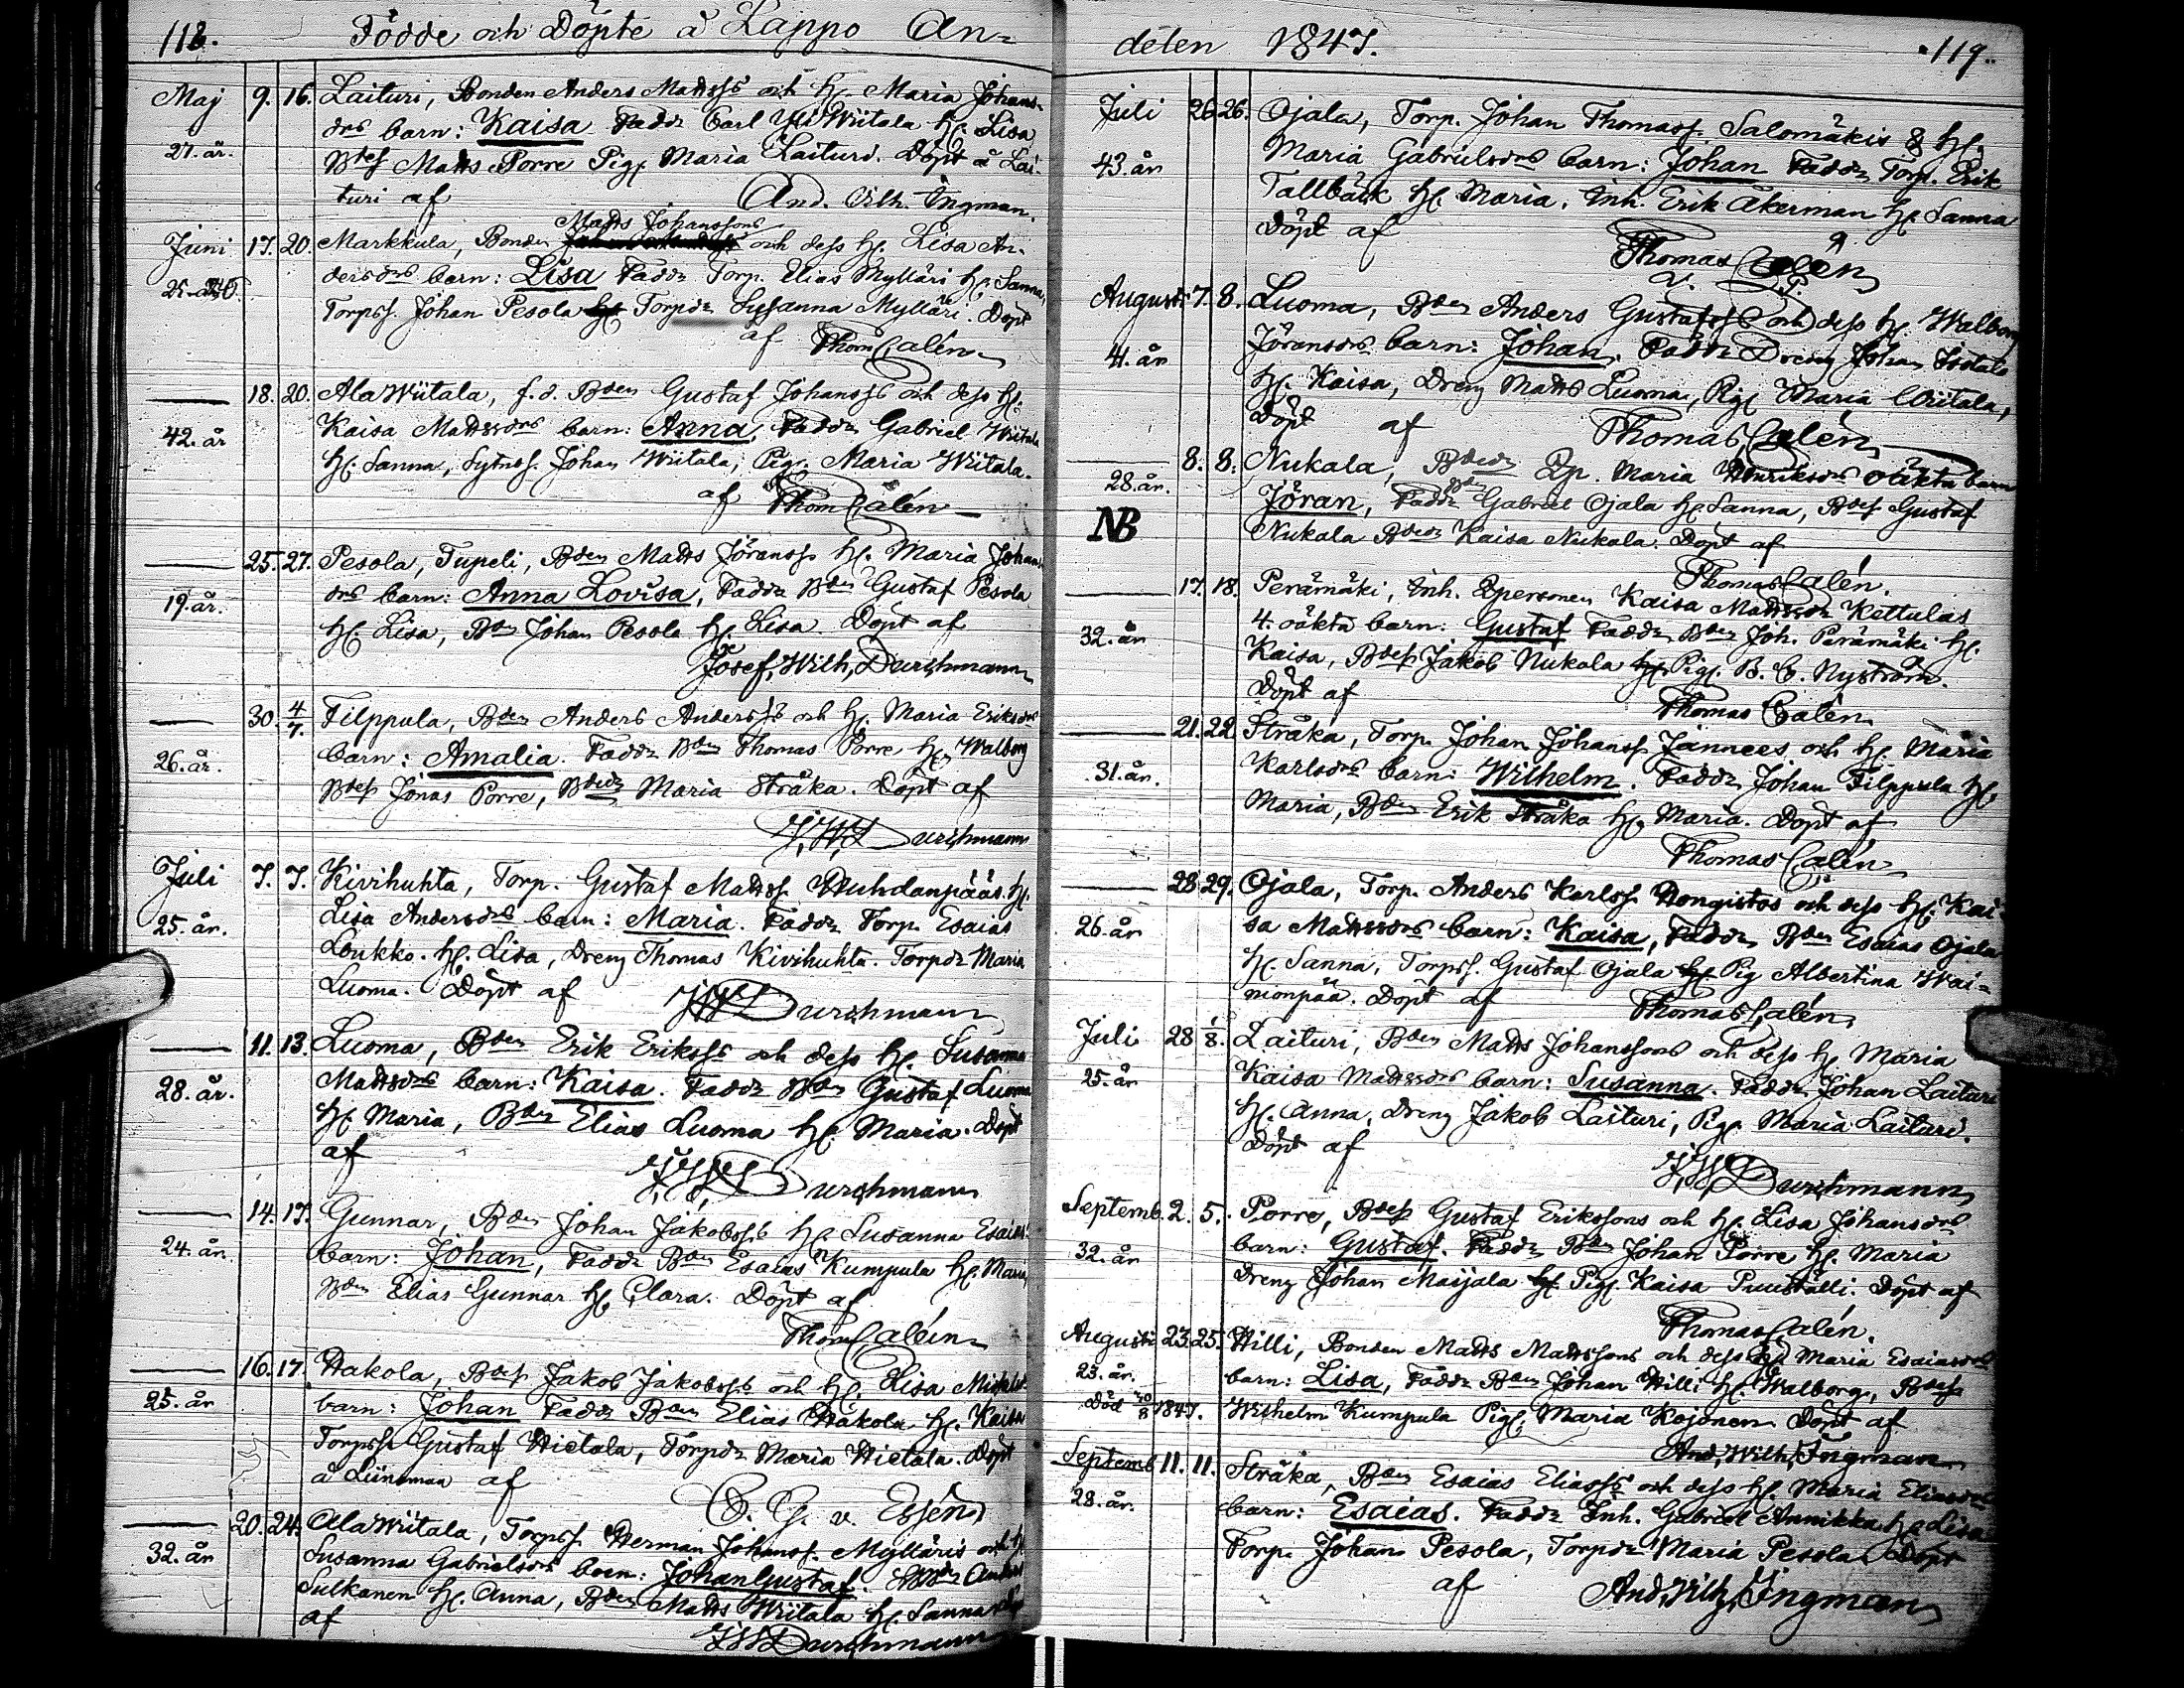 118. Födde och Döpte å Lappo An=
Maj 9. 16. Laituri, Bonden Anders Mattss och Hu Maria Johans-
drs barn: Kaisa Faddr Carl Yli Wiitala Hu Lisa
27. år. Bdes Matts Porre Pig. Maria Laituri. Döpt å Lai-
turi af And. Wilh. Ingman.
Matts Johanssons
Juni 17. 20. Markkula, Bonden och dess Hu Lisa An-
dersdrs barn: Lisa Faddr Torp. Elias Mylläri Hu Sanna,
Torpss. Johan Pesola Torpdr Susanna Mylläri. Döpt
af Thom Calén
18. 20. Ala Wiitala, f.d. Bden Gustaf Johanss och dess Hu
Kaisa Mattsdrs barn: Anna, Faddr Gabriel Wiitala
42. år Hu Sanna, Sytnss. Johan Wiitala, Pig. Maria Wiitala.
af Thom Calén
25. 27. Pesola, Tupeli, Bden Matts Jöranss Hu Maria Johans
19. år. drs barn: Anna Lovisa, Faddr Bden Gustaf Pesola
Hu Lisa, Bden Johan Pesola Hu Lisa. Döpt af
Josef Wilh. Durchmann
30. 4/7. Filppula, Bden Anders Anderss och Hu Maria Eriksdrs
26. år. barn: Amalia. Faddr Bden Thomas Porre Hu Walborg
Bdess Jonas Porre, Bdedr Maria Stråka. Döpt af
J. W. Durchmann
Juli 7. 7. Kivihuhta, Torp. Gustaf Mattss. Huhdanpääs. Hu
Lisa Andersdrs barn: Maria. Faddr Torp. Esaias
25. år. Loukko. Hu Lisa, Dreng Thomas Kivihuhta. Torpdr Maria
Luoma. Döpt af JW Durchmann
11. 13. Luoma, Bden Erik Erikss och dess Hu Susanna
28. år. Mattsdrs barn: Kaisa. Faddr Bden Gustaf Luoma
Hu Maria, Bden Elias Luoma Hu Maria. Döpt
af J. W. Durchmann
14. 17. Gunnar, Bden Johan Jakobss Hu Susanna Esaias
24. år. barn: Johan, Faddr Bden Esaias Kumpula Hu Maria,
Bden Elias Gunnar Hu Clara. Döpt af
Thom Calén
16. 17. Hakola, Bdess Jakob Jakobss och Hu Lisa
25. år barn: Johan Faddr Bden Elias Hakola Hu Kaisa
Torpss Gustaf Hietala, Torpdr Maria Hietala. Döpt
å Liinamaa af C. G. v. Essen
20. 24. Ala Wiitala, Torpss. Herman Johanss. Mylläris och Hu
32. år Susanna Gabrielsdrs barn: Johan Gustaf. Anders
Sulkanen Hu Anna, Bden Matts Wiitala Hu Sanna
af JW Durchmann
delen 1847. 119.
Juli 26. 26. Ojala, Torp. Johan Thomass. Salomäkis & Hu
43. år Maria Gabrielsdrs barn: Johan Faddr Torp. Erik
Tallbäck Hu Maria, Inh. Erik Åkerman Hu Sanna
Döpt af Thomas Calén
V. P.
Augusti 7. 8. Luoma, Bden Anders Gustafss och dess Hu Walborg
41. år Jöransdrs barn: Johan. Faddr Dreng Johan
Hu Kaisa, Dreng Matts Luoma, Pig Maria Wiitala,
Döpt af Thomas Calén
8. 8. Nukala, Bdedr Qp. Maria Henriksdrs oäkta barn
28. år. Jöran, Faddr Bden Gabriel Ojala Hu Sanna, Bdess Gustaf
NB Nukala Bdedr Kaisa Nukala. Döpt af
Thomas Calén.
17. 18. Perämäki, Inh. Qpersonen Kaisa Mattsdr Kettulas
32. år 4. oäkta barn: Gustaf Faddr Bden Joh. Perämäki Hu
Kaisa, Bdess Jakob Nukala Pig. B. C. Nyström.
Döpt af Thomas Calén
21. 22. Stråka, Torp. Johan Johanss Jannees och Hu Maria
31. år. Karlsdrs barn: Wilhelm. Faddr Johan Filppula Hu
Maria, Bden Erik Stråka Hu Maria. Döpt af
Thomas Calén
28. 29. Ojala, Torp. Anders Karlss. Hongistos och dess Hu Kai-
26. år sa Mattsdrs barn: Kaisa, Faddr Bden Esaias Ojala
Hu Sanna, Torpss. Gustaf Ojala Pig Albertina Wai-
nionpää. Döpt af Thomas Calén
Juli 28 1/8. Laituri, Bden Matts Johanssons och dess Hu Maria
25. år Kaisa Mattsdrs barn: Susanna. Faddr Johan Laituri
Hu Anna, Dreng Jakob Laituri, Pig. Maria Laituri.
Döpt af J. W. Durchmann
Septemb. 2. 5. Porre, Bdess Gustaf Erikssons och Hu Lisa Johansdrs
32. år barn: Gustaf. Faddr Bden Johan Porre Hu Maria
Dreng Johan Maijala Pig. Kaisa Puuställi. Döpt af
Thomas Calén.
Augusti 23. 25. Hilli, Bonden Matts Mattssons och dess Hu Maria Esaiasdrs
23. år. barn: Lisa, Faddr Bden Johan Hilli Hu Walborg, Bdess
Död 30/8 1847. Wilhelm Kumpula Pig. Maria Kojonen Döpt af
And. Wilh. Ingman
Septemb 11. 11. Stråka, Bden Esaias Eliass och dess Hu Maria Eliasdrs
28. år. barn: Esaias. Faddr Inh. Gabriel Annikka Hu Lisa
Torp. Johan Pesola, Torpdr Maria Pesola Döpt
af And. Wilh. Ingman